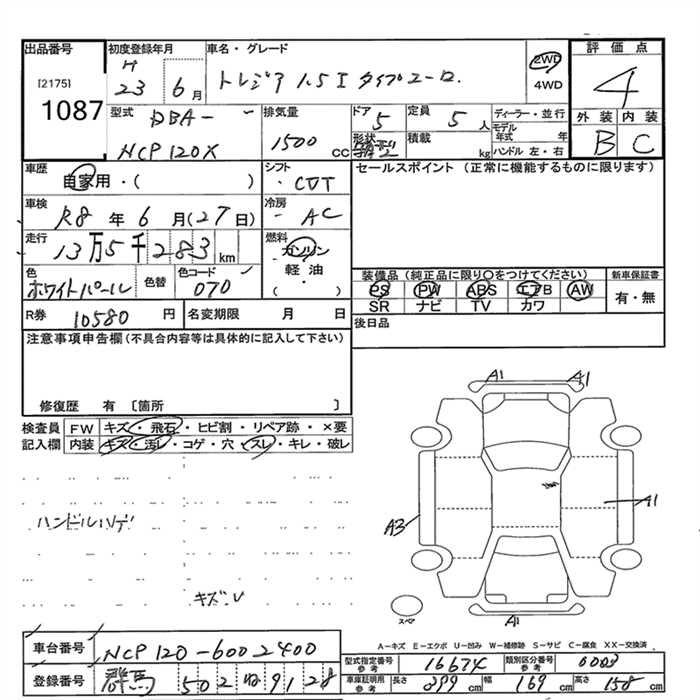 出品番号 初度登録年月 車名・グレード 評価点
[2175] H 23 6月 トレジア 1.5I タイプユーロ 2WD 4WD 4
1087
型式 排気量 ドア 定員 ディーラー・並行 外装 内装
DBA- NCP120X 1500 CC 5 5人 モデル年式 年 B C
形状 積載 kg ハンドル 左・右
車歴 自家用・( ) シフト ・CVT セールスポイント (正常に機能するものに限ります)
車検 R8年6月(27日) 冷房 ・AC
走行 13万5千283km 燃料 ガソリン 軽油 ・ ( )
色 ホワイトパール 色替 色コード 070
装備品(純正品に限り○をつけてください) 新車保証書
PS PW ABS エアB AW 有・無
SR ナビ TV カワ
R券 10580円 名変期限 月 日 後日品
注意事項申告欄(不具合内容等は具体的に記入して下さい)
修復歴 有 〔箇所 〕
検査員 FW キズ・飛石・ヒビ割・リペア跡・×要
記入欄 内装 キズ・汚レ・コゲ・穴・スレ・キレ・破レ
A1 A1
ハンドルハゲ A3 A1
キズ・U
スペア A1
A-キズ E-エクボ U-凹み W-補修跡 S-サビ C-腐食 XX-交換済
車台番号 NCP120-6002400
型式指定番号 参考 16674 類別区分番号 参考 0003
登録番号 群馬 502 ね 9128
車庫証明用 参考 長さ 399cm 幅 169cm 高さ 158cm